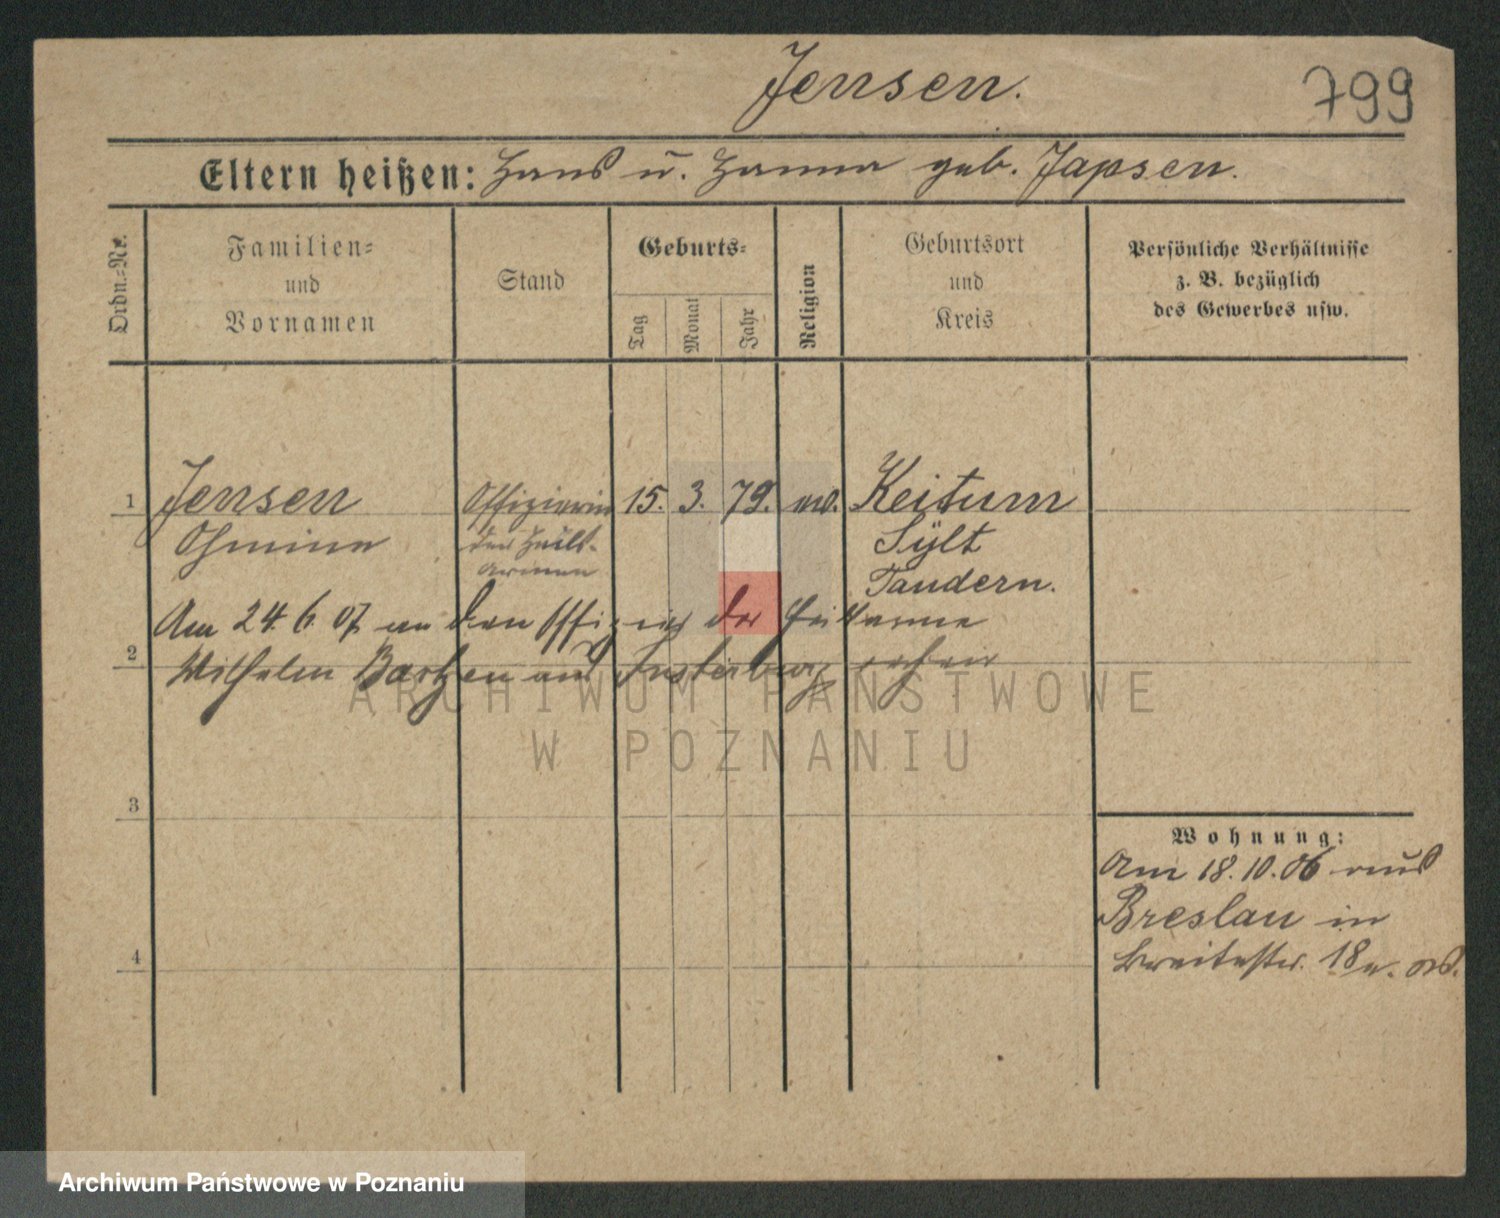 Jensen.
799
Eltern heißen: Hans u. Hanna geb. Japsen.
Ordn.=Nr.
Familien=
und
Vornamen
Stand
Geburts=
Tag
Monat
Jahr
Religion
Geburtsort
und
Kreis
Persönliche Verhältnisse
z. B. bezüglich
des Gewerbes usw.
1 Jensen Offizierin 15. 3. 79. ev. Keitum
der Heils-
armee
Sylt
Tandern.
Am 24. 6. 07 an den Offizier der Heilsarmee
2
Wilhelm aus Insterburg
ARCHIWUM PAŃSTWOWE
W POZNANIU
3
Wohnung:
Am 18. 10. 06 aus
Breslau in
Breitestr. 18
4
Archiwum Państwowe w Poznaniu